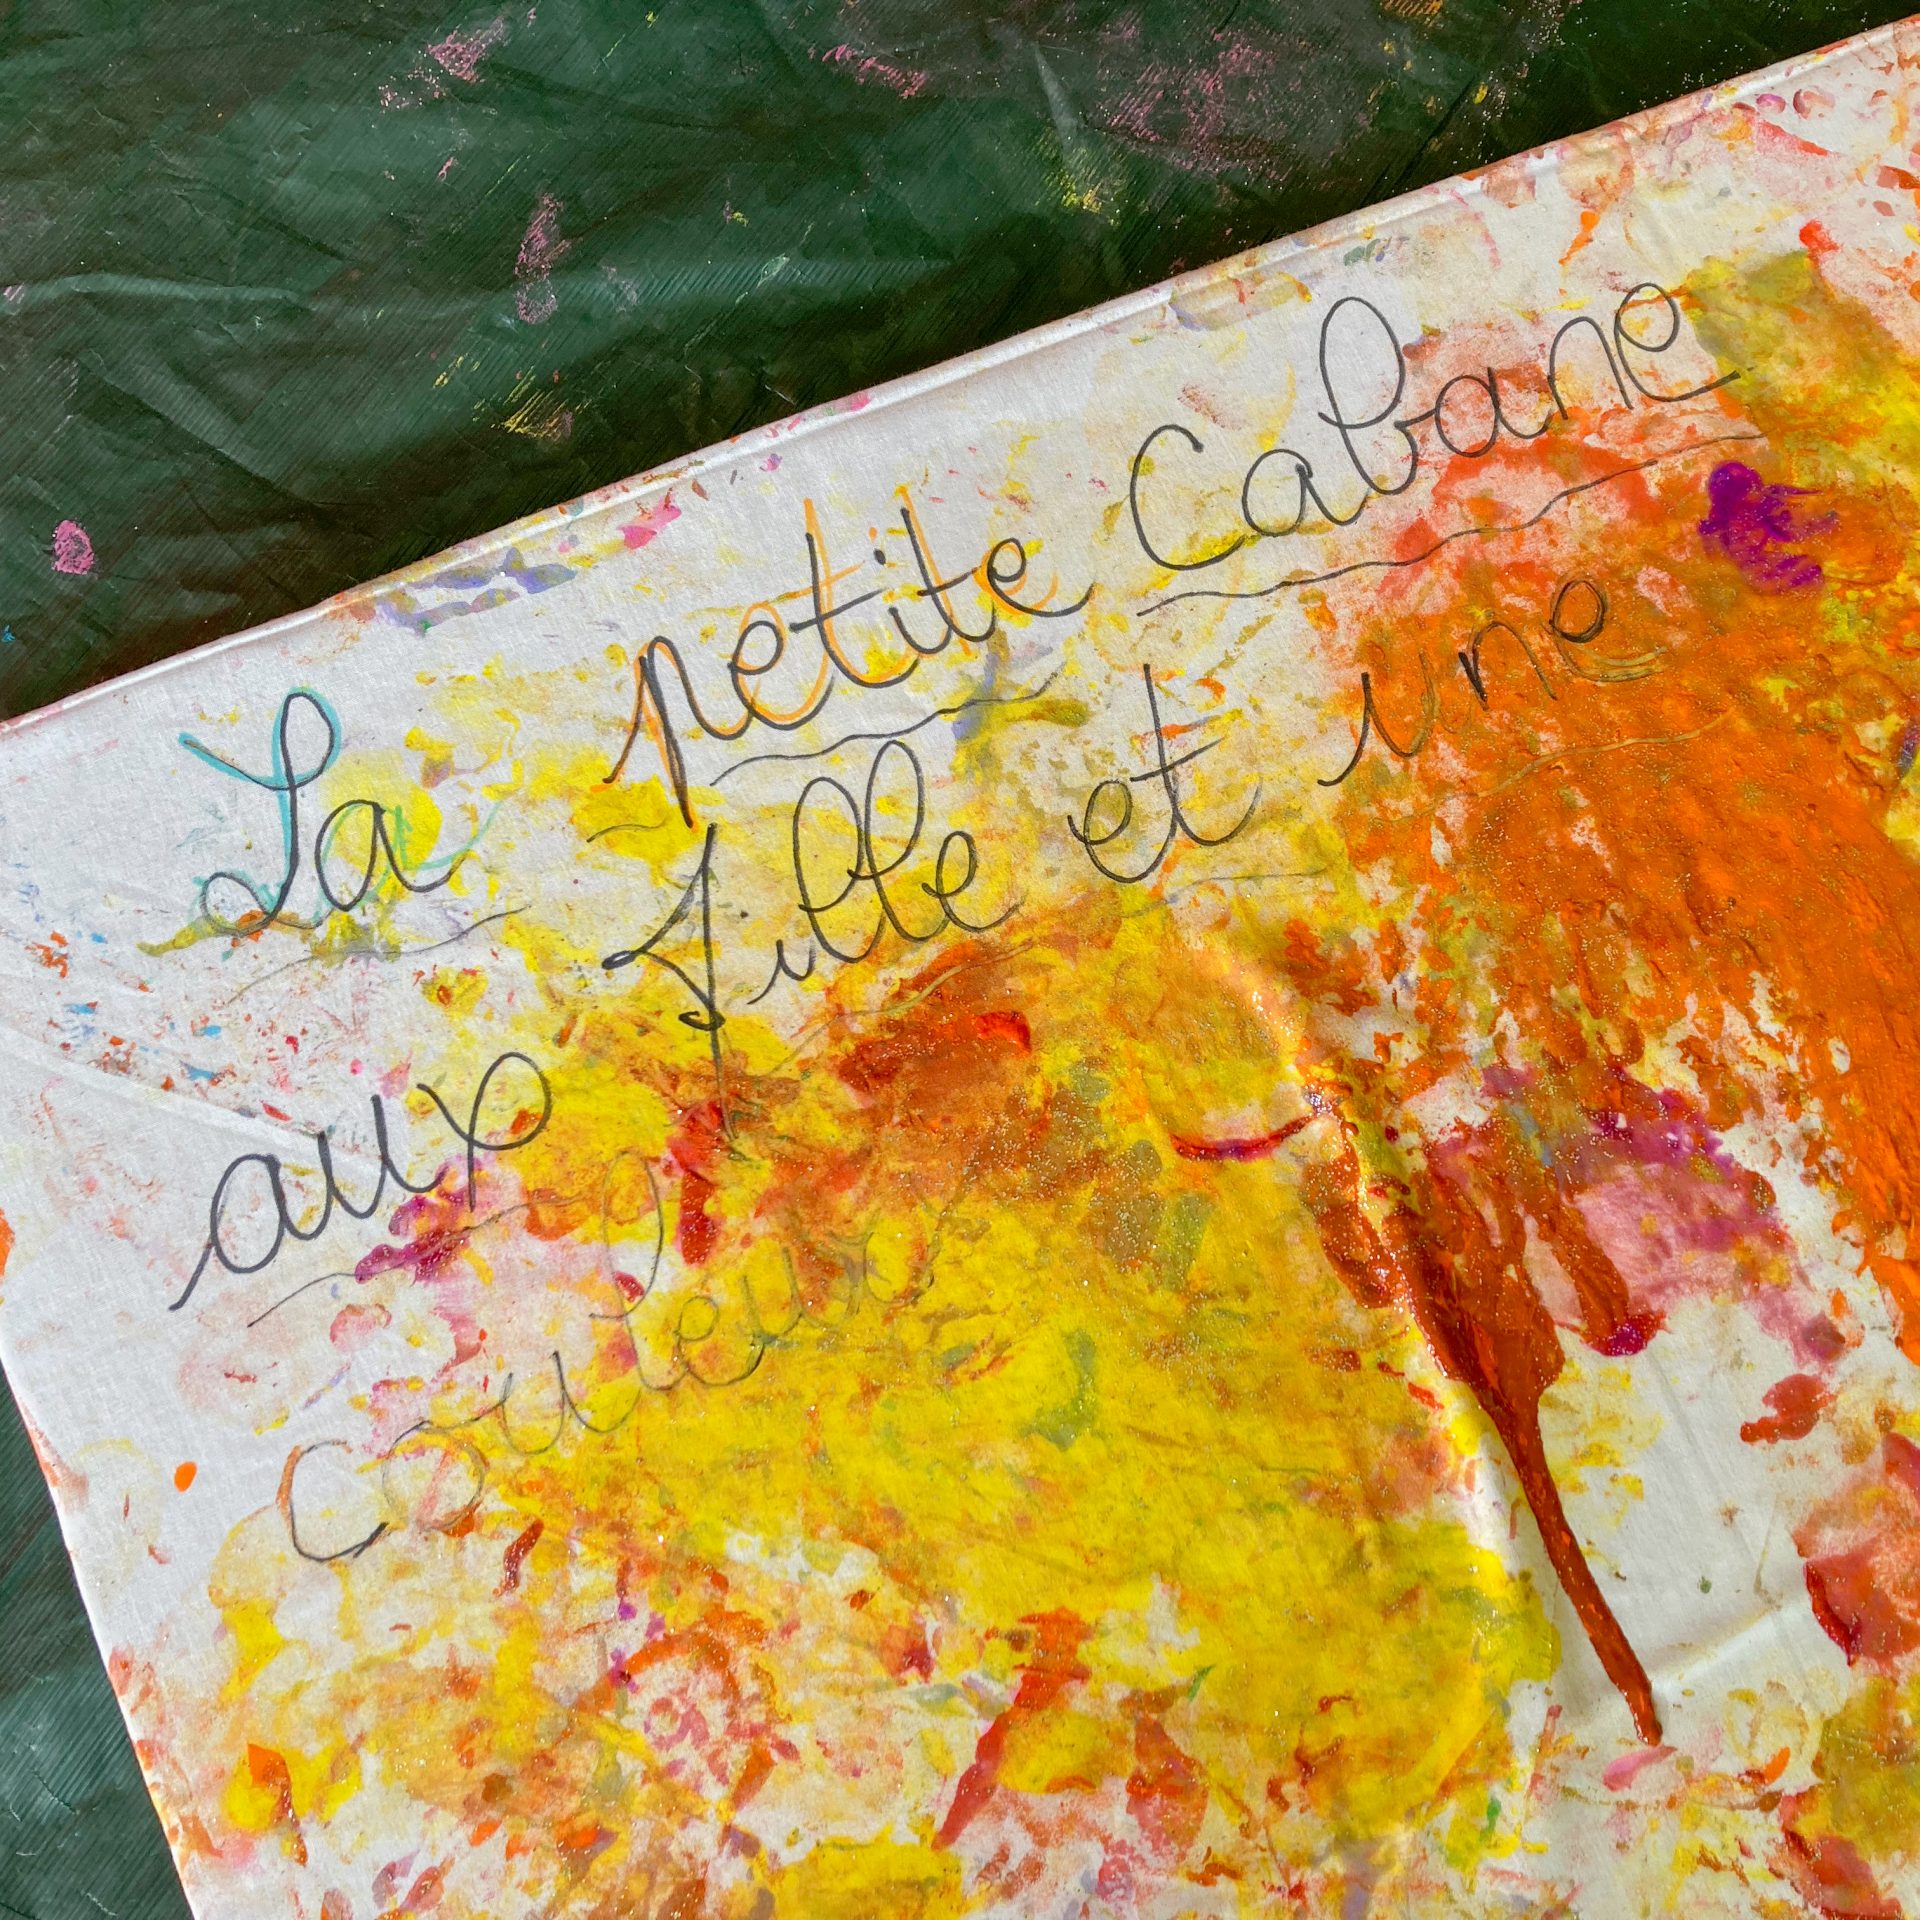 La petite Cabane
aux fille et une
couleux